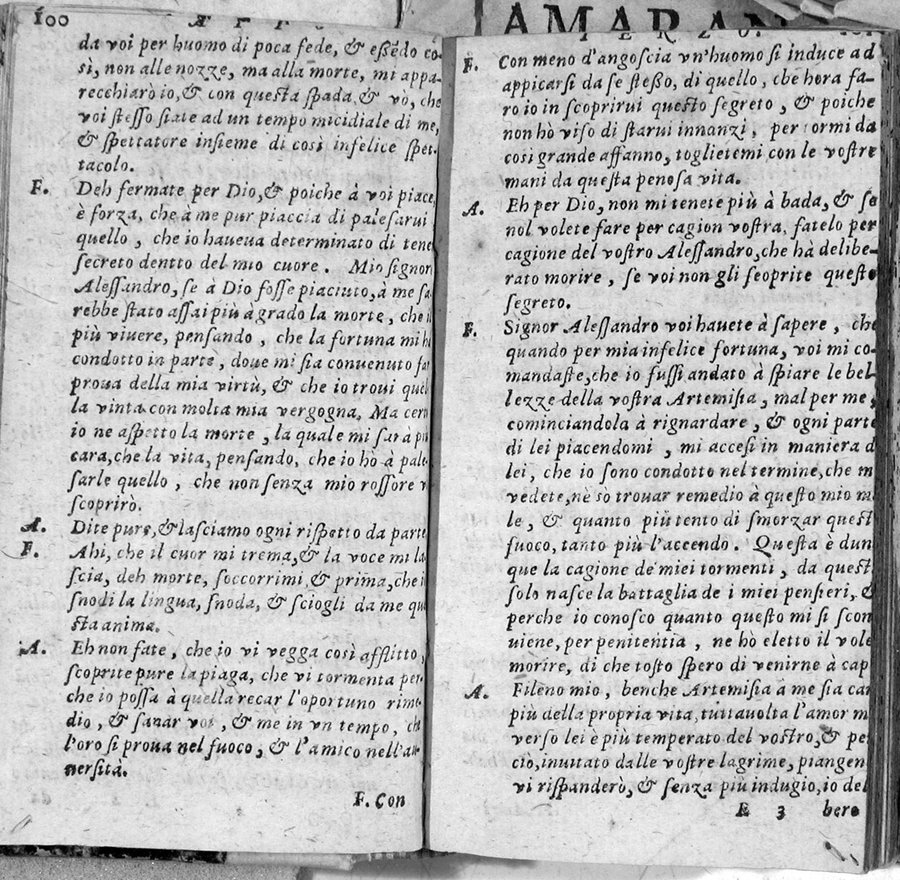 100
AMARAN
da voi per huomo di poca fede, & eßēdo co-
sì, non alle nozze, ma alla morte, mi appa-
recchiarò io, & con questa spada, & vò, che
voi stesso siate ad un tempo micidiale di me,
& spettatore insieme di così infelice spet-
tacolo.
F. Deh fermate per Dio, & poiche à voi piace
è forza, che à me pur piaccia di palesarui
quello, che io haueua determinato di tene
secreto dentto del mio cuore. Mio signor
Alessandro, se à Dio fosse piaciuto, à me sa
rebbe stato assai più à grado la morte, che il
più viuere, pensando, che la fortuna mi h
condotto in parte, doue mi sia conuenuto fa
proua della mia virtù, & che io troui quel
la vinta con molta mia vergogna. Ma cert
io ne aspetto la morte, la quale mi sarà pi
cara, che la vita, pensando, che io hò à pale
sarle quello, che non senza mio rossore v
scoprirò.
A. Dite pure, & lasciamo ogni rispetto da parte
F. Ahi, che il cuor mi trema, & la voce mi la
scia, deh morte, soccorrimi, & prima, che i
snodi la lingua, snoda, & sciogli da me que
sta anima.
A. Eh non fate, che io vi vegga così afflitto,
scoprite pure la piaga, che vi tormenta per
che io possa à quella recar l'oportuno rime
dio, & sanar voi, & me in vn tempo, che
l'oro si proua nel fuoco, & l'amico nell'au
uersità.
F. Con
F. Con meno d'angoscia vn'huomo si induce ad
appicarsi da se steßo, di quello, che hora fa-
rò io in scoprirui questo segreto, & poiche
non hò viso di starui innanzi, per tormi da
così grande affanno, toglietemi con le vostre
mani da questa penosa vita.
A. Eh per Dio, non mi tenete più à bada, & se
nol volete fare per cagion vostra, fatelo per
cagione del vostro Alessandro, che hà delibe-
rato morire, se voi non gli seoprite questo
segreto.
F. Signor Alessandro voi hauete à sapere, che
quando per mia infelice fortuna, voi mi co-
mandaste, che io fussi andato à spiare le bel-
lezze della vostra Artemisia, mal per me,
cominciandola à rignardare, & ogni parte
di lei piacendomi, mi accesi in maniera d
lei, che io sono condotto nel termine, che m
vedete, ne sò trouar remedio à questo mio ma
le, & quanto più tento di smorzar quest
fuoco, tanto più l'accendo. Questa è dun
que la cagione de miei tormenti, da quest
solo nasce la battaglia de i miei pensieri, &
perche io conosco quanto questo mi si scon
uiene, per penitentia, ne hò eletto il vole
morire, di che tosto spero di venirne à cap
A. Fileno mio, benche Artemisia à me sia car
più della propria vita, tuttauolta l'amor m
verso lei è più temperato del vostro, & per
ciò, inuitato dalle vostre lagrime, piangen
vi risponderò, & senza più indugio, io del
E 3 bero